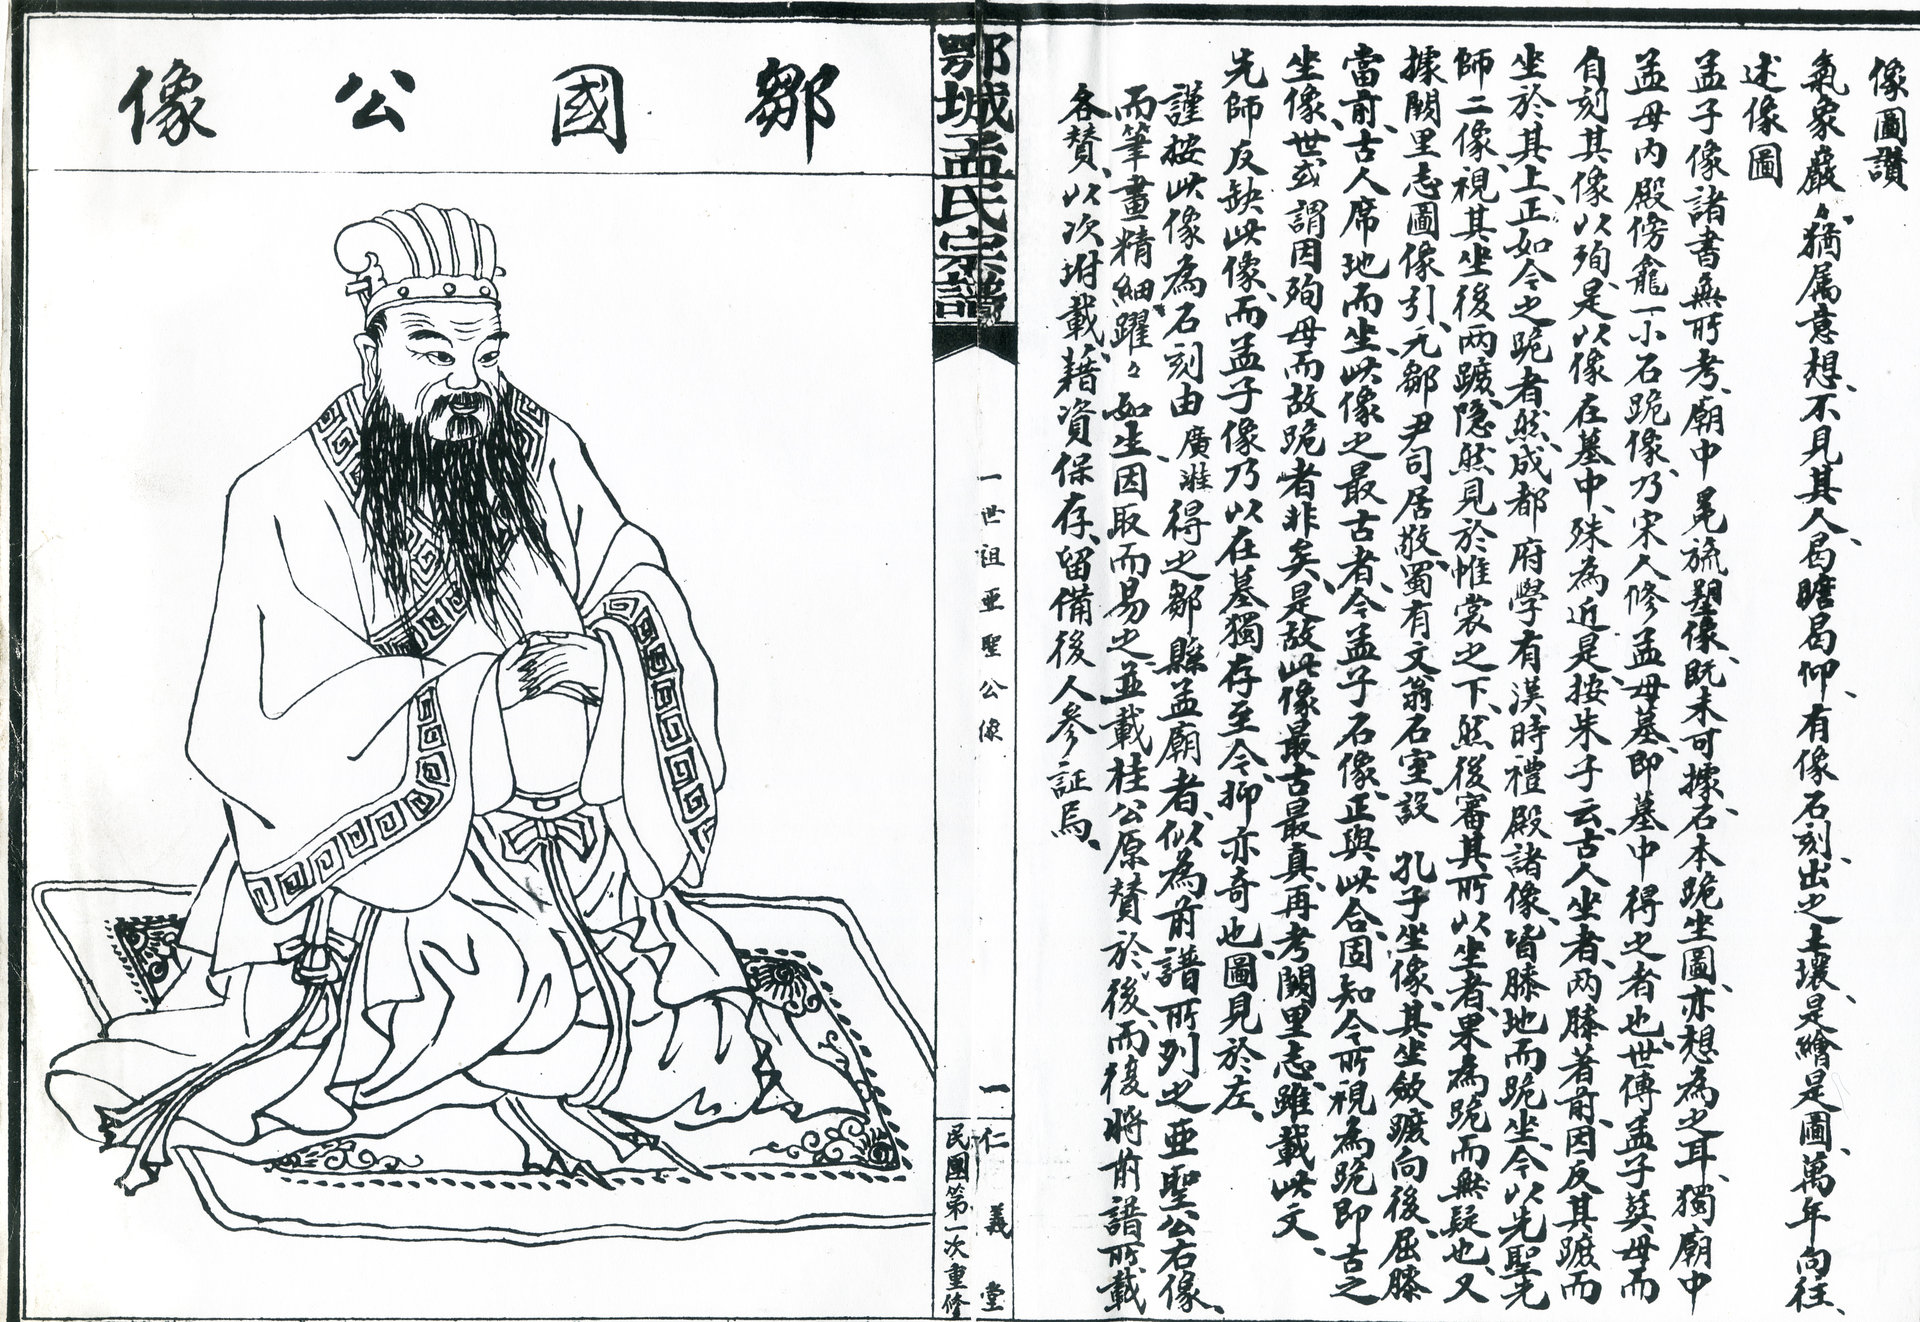 像圖讚
氣象巖〻猶属意想、不見其人曷瞻曷仰、有像石刻、出之土壤、是繪是圖、萬年向往、
述像圖
孟子像諸書無所考、廟中冕旒塑像、既未可據、石本跪坐圖、亦想為之耳、獨廟中
孟母內殿傍龕一小石跪像、乃宋人修孟母墓、即墓中得之者也、世傳孟子葬母而
自刻其像以殉、是以像在墓中、殊為近是、按朱子云古人坐者、两膝著前、因反其蹠而
坐於其上、正如今之跪者然、成都府學有漢時禮殿諸像、皆膝地而跪坐、今以先聖先
師二像、視其坐後两蹠、隱然見於帷裳之下、然後審其所以坐者、果為跪而無疑也、又
據闕里志圖像引、元鄒尹司居敬、蜀有文翁石室、設 孔子坐像、其坐斂蹠向後、屈膝
當前、古人席地而坐、此像之最古者、今孟子石像、正與此合、固知今所視為跪、即古之
坐像、世或謂因殉母而故跪者非矣、是故此像最古最真、再考闕里志、雖載此文、
先師反缺此像、而孟子像乃以在墓獨存至今、抑亦奇也、圖見於左、
謹按此像為石刻由廣濰得之鄒縣孟廟者、似為前譜所列之亞聖公石像、
而筆畫精細躍〻如生、因取而易之、並載桂公原贊於後、而後將前譜所載
各贊、以次坿載、藉資保存、留備後人參証焉、
鄂城孟氏宗譜
一世祖亞聖公像
一
仁義堂
民國第一次重修
鄒國公像